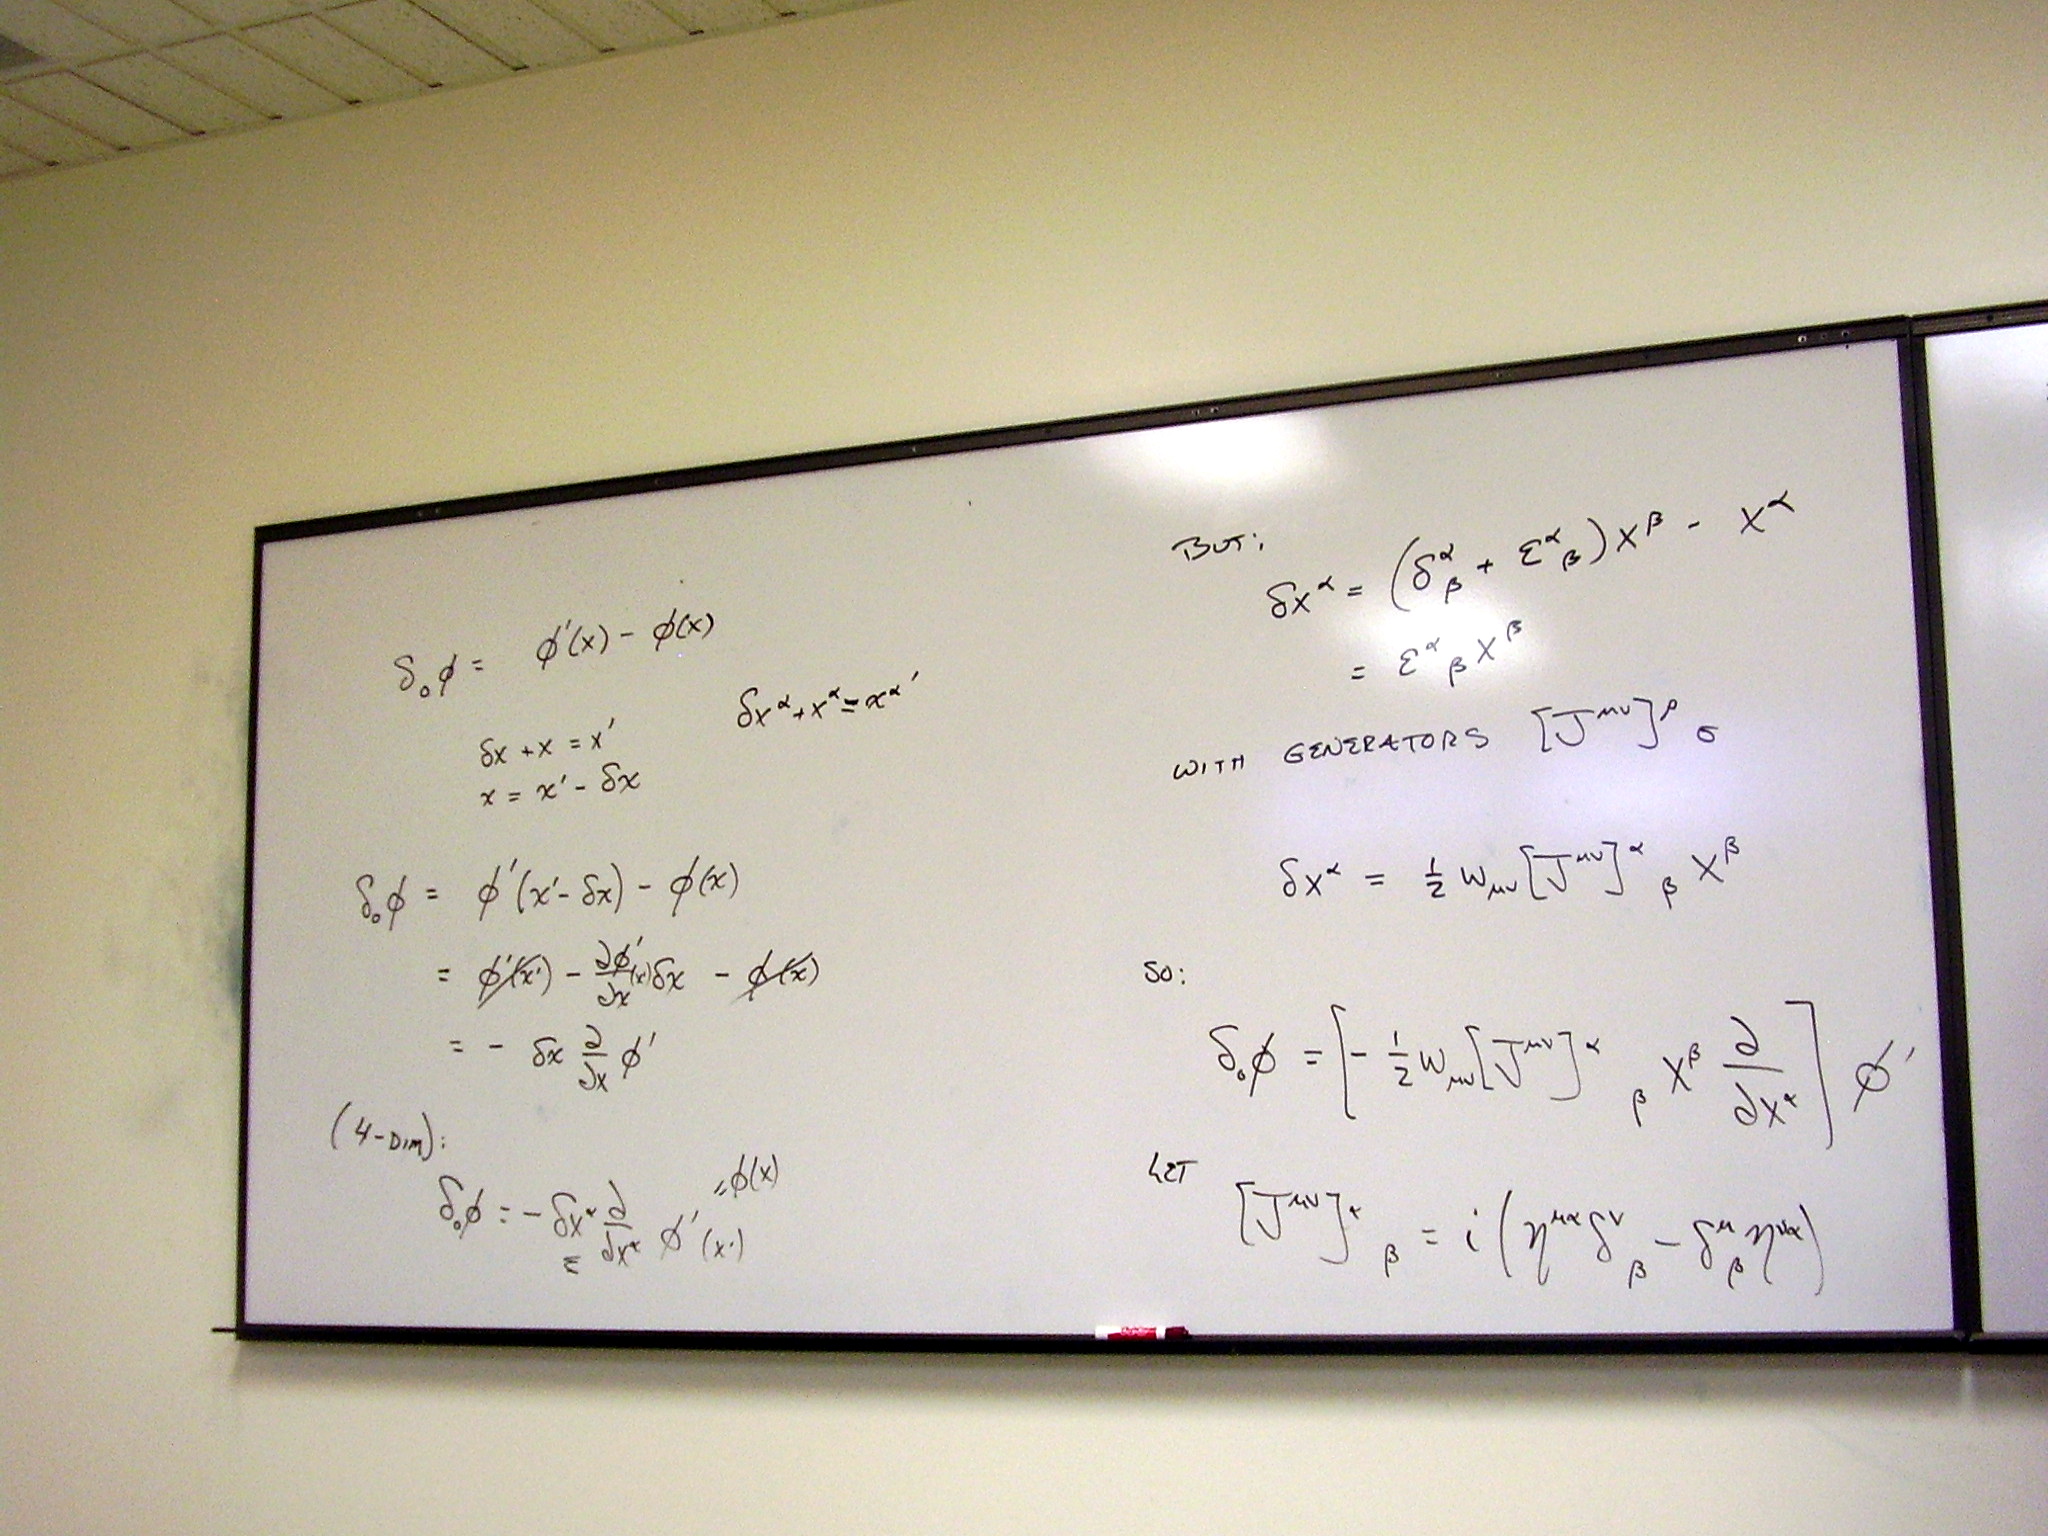 δ₀φ = φ'(x) - φ(x)
δx + x = x'
δx^α + x^α = x^α'
x = x' - δx
δ₀φ = φ'(x' - δx) - φ(x)
= φ'(x') - ∂φ'/∂x (x') δx - φ(x)
= - δx ∂/∂x φ'
(4-DIM):
δ₀φ = - δx^α ∂/∂x^α φ'(x') = φ(x)
BUT:
δx^α = (δ^α_β + ε^α_β) x^β - x^α
= ε^α_β x^β
WITH GENERATORS [J^μν]^ρ_σ
δx^α = 1/2 ω_μν [J^μν]^α_β x^β
SO:
δ₀φ = [- 1/2 ω_μν [J^μν]^α_β x^β ∂/∂x^α] φ'
LET
[J^μν]^α_β = i (η^μα δ^ν_β - δ^μ_β η^να)